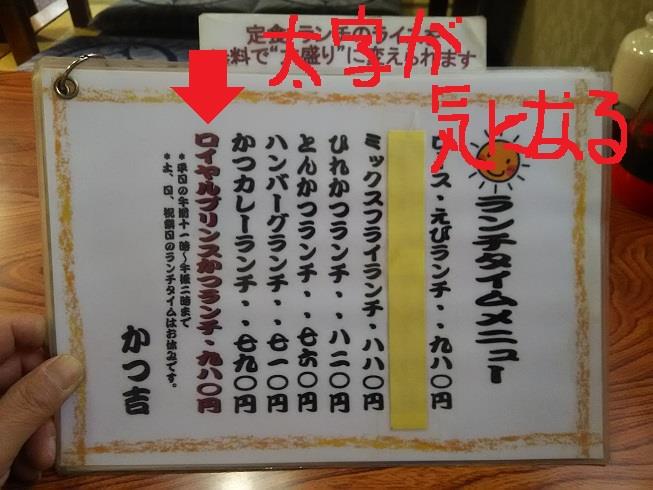 定食 ランチのライスを
無料で"大盛り"に変えられます
太字が
気になる
ランチタイムメニュー
ロース・えびランチ・・九八〇円
ミックスフライランチ・八八〇円
ひれかつランチ・・八二〇円
とんかつランチ・・七六〇円
ハンバーグランチ・・七一〇円
かつカレーランチ・・七九〇円
ロイヤルプリンスかつランチ・九八〇円
*平日の午前十一時～午後二時まで
*土、日、祝祭日のランチタイムはお休みです。
かつ吉